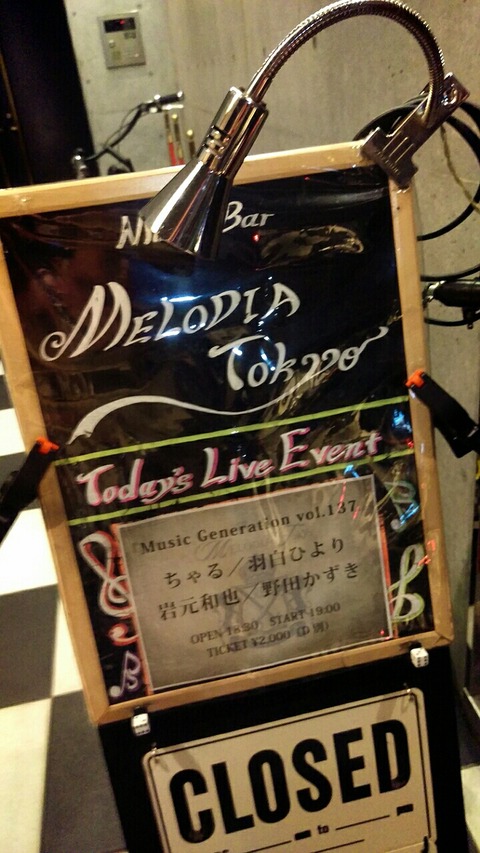 Bar
MELODIA
Tokyo
Today's Live Event
『Music Generation vol.137』
ちゃる／羽白ひより
岩元和也×野田かずき
OPEN 18:30 START 19:00
TICKET ¥2,000 (D別)
CLOSED
to